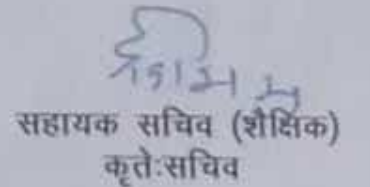 सहायक सचिव (शैक्षिक)
कृतेःसचिव